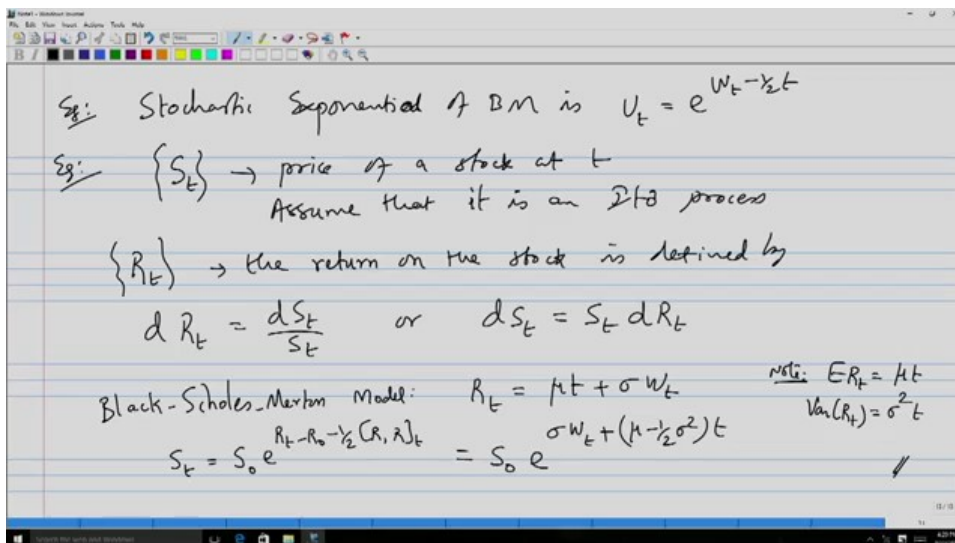 Note1 - Windows Journal
File Edit View Insert Actions Tools Help
B I
Eg: Stochastic Exponential of BM is U_t = e^{W_t - 1/2 t}
Eg: {S_t} → price of a stock at t
Assume that it is an Itô process
{R_t} → the return on the stock is defined by
d R_t = dS_t / S_t or dS_t = S_t dR_t
Black-Scholes-Merton Model: R_t = μt + σ W_t
Note: E R_t = μt
Var(R_t) = σ² t
S_t = S_0 e^{R_t - R_0 - 1/2 [R, R]_t} = S_0 e^{σ W_t + (μ - 1/2 σ²) t}